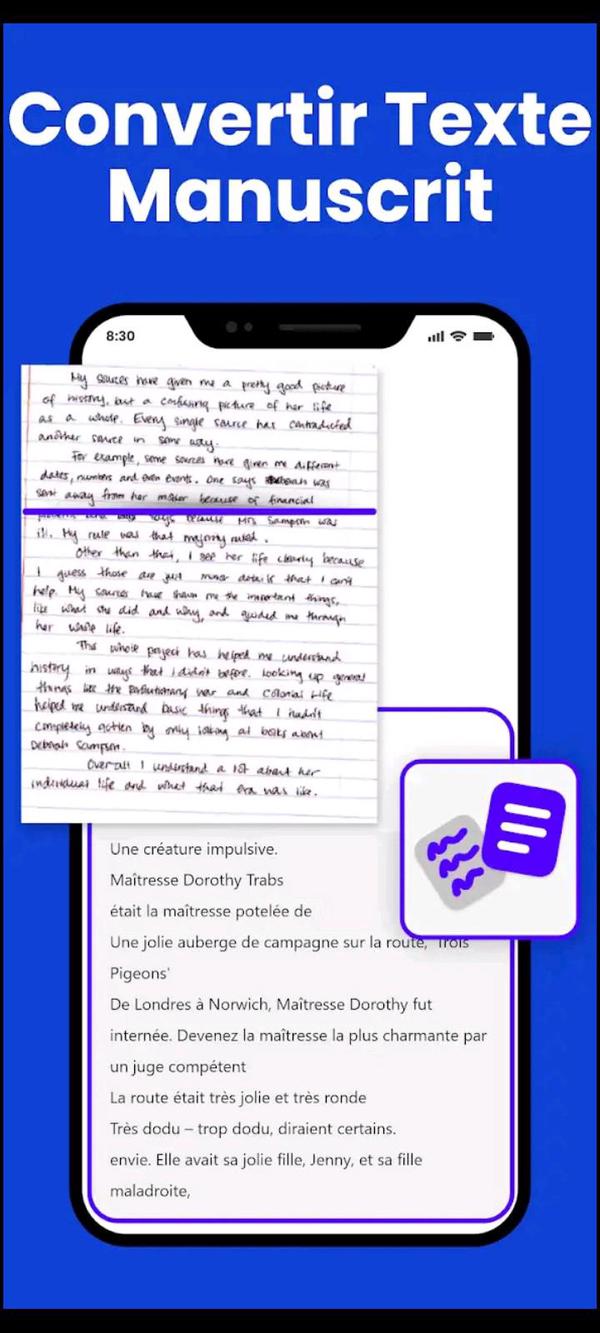 Convertir Texte
Manuscrit
8:30
My sources have given me a pretty good picture
of history, but a confusing picture of her life
as a whole. Every single source has contradicted
another source in some way.
For example, some sources have given me different
dates, numbers and even events. One says Deborah was
sent away from her master because of financial
problems and says because Mrs Sampson was
ill. My rule was that majority ruled.
Other than that, I see her life clearly because
I guess those are just minor details that I can't
help. My sources have shown me the important things,
like what she did and why, and guided me through
her whole life.
This whole project has helped me understand
history in ways that I didn't before. Looking up general
things like the Revolutionary war and Colonial Life
helped me understand basic things that I hadn't
completely gotten by only looking at books about
Deborah Sampson.
Overall I understand a lot about her
individual life and what that era was like.
Une créature impulsive.
Maîtresse Dorothy Trabs
était la maîtresse potelée de
Une jolie auberge de campagne sur la route, 'Trois
Pigeons'
De Londres à Norwich, Maîtresse Dorothy fut
internée. Devenez la maîtresse la plus charmante par
un juge compétent
La route était très jolie et très ronde
Très dodu – trop dodu, diraient certains.
envie. Elle avait sa jolie fille, Jenny, et sa fille
maladroite,